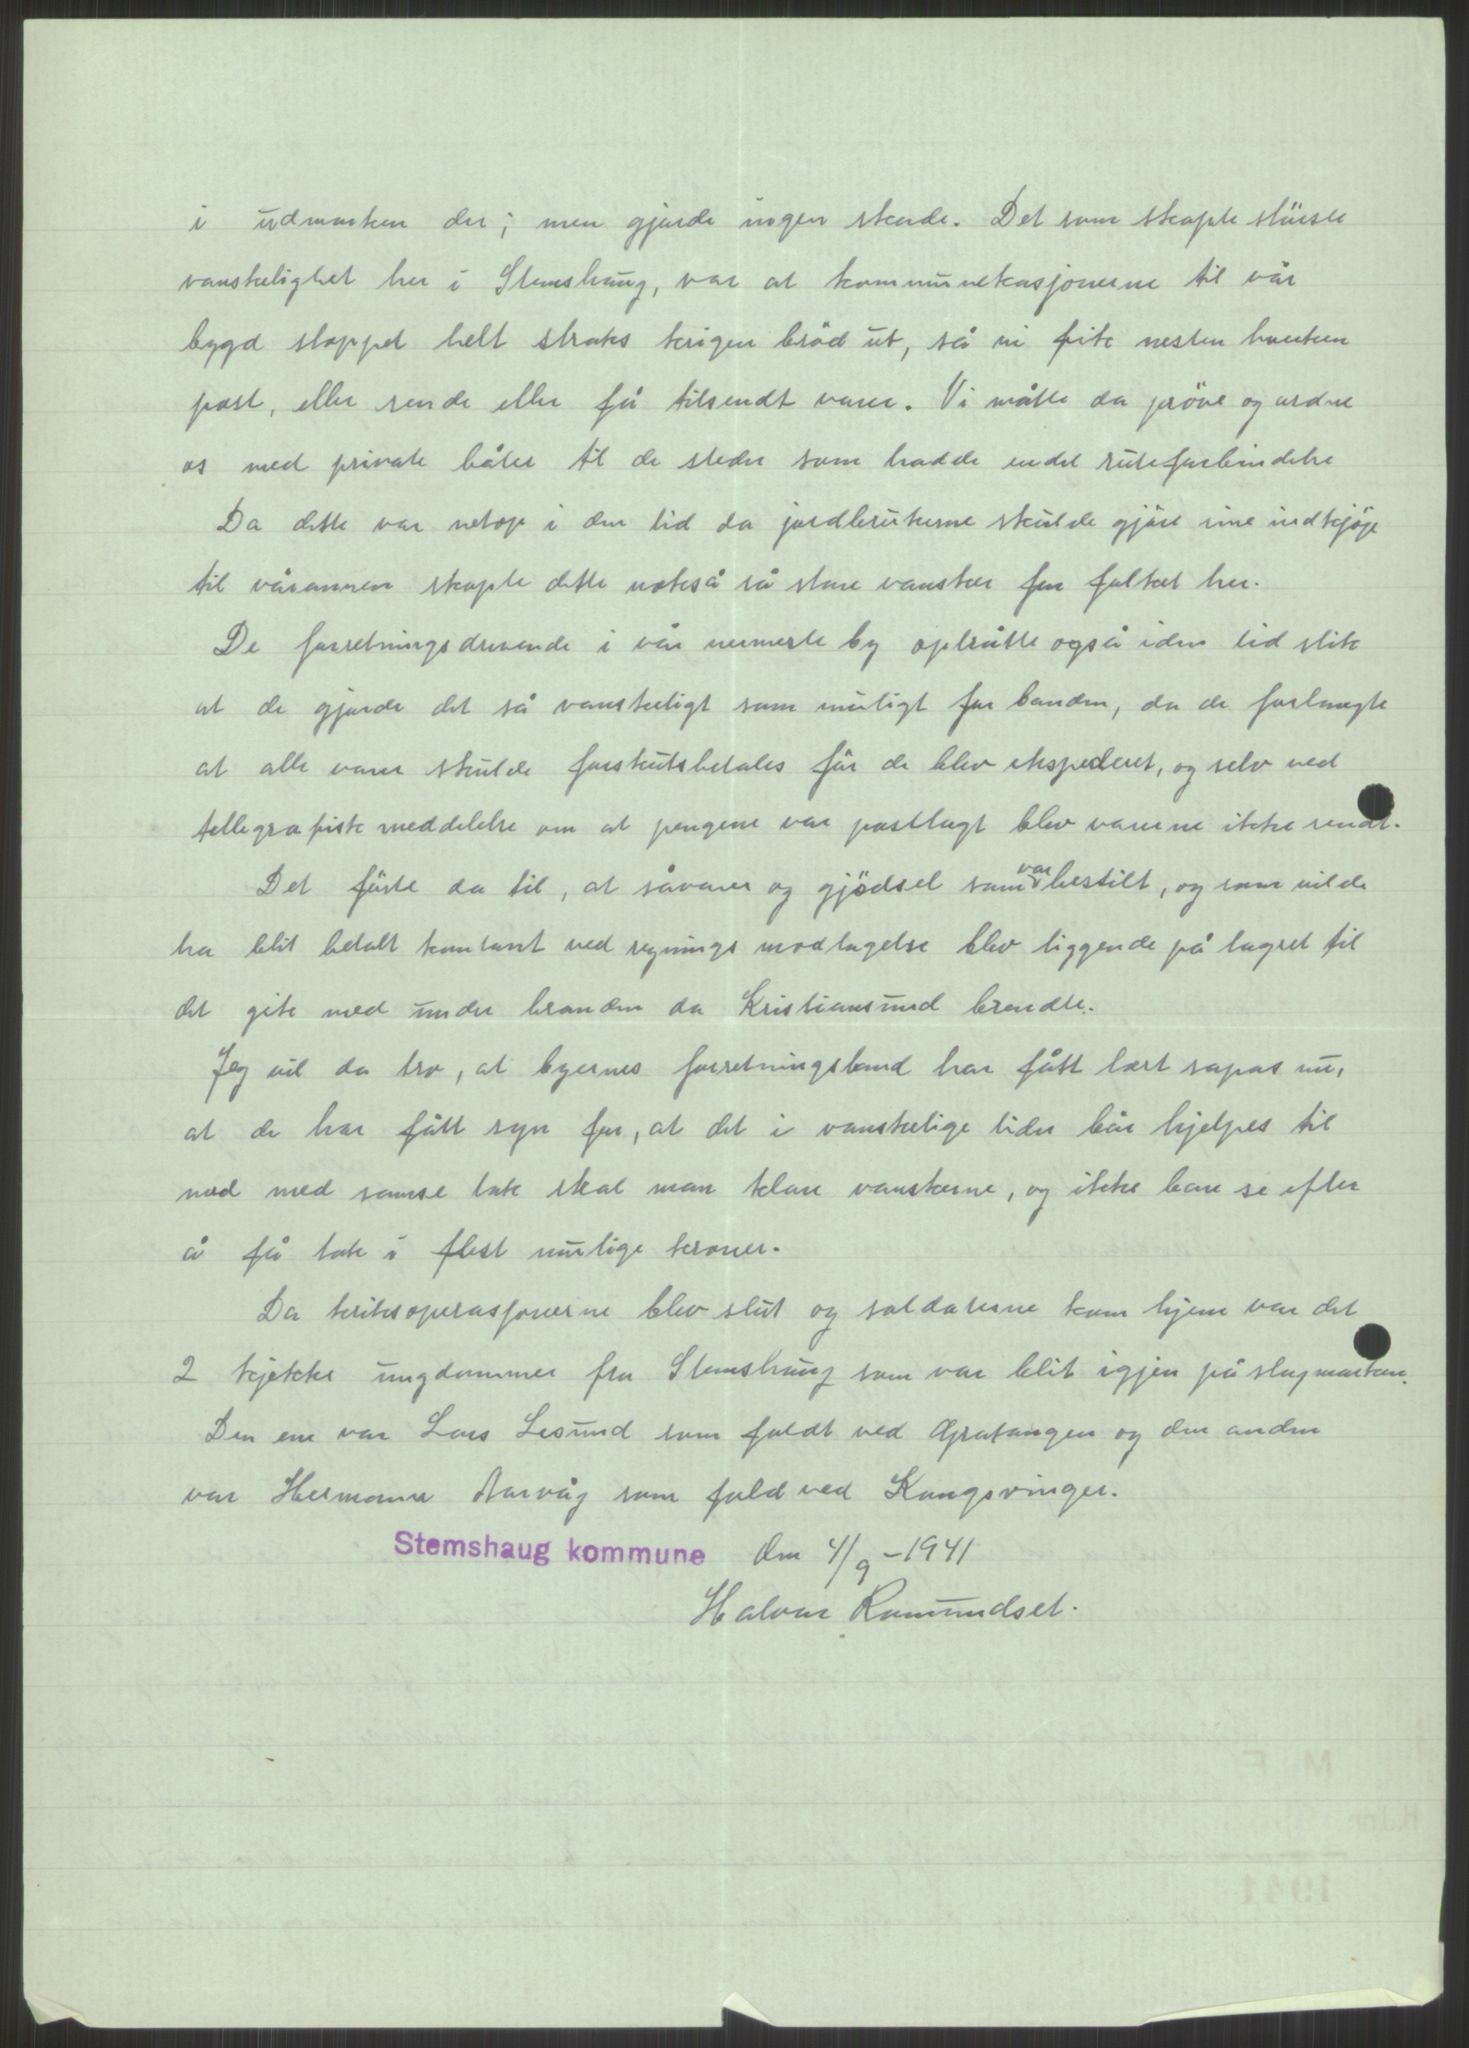 i udmarken der; men gjorde ingen skade. Det som skapte største
vanskelighet her i Stemshaug, var at kommunekasjonerne til vår
bygd stoppet helt straks krigen brød ut, så vi fik nesten hverken
post, eller sende eller få tilsendt varer. Vi måtte da prøve og ordne
os med private båter til de steder som hadde endel ruteforbindelse
Da dette var netop i den tid da jordbrukerne skulde gjøre sine indkjøp
til våronnen skapte dette også så store vansker for folket her.
De forretningsdrivende i vår nermeste by optrådte også i den tid slik
at de gjorde det så vanskeligt som muligt for bonden, da de forlangte
at alle varer skulde forskutsbetales før de blev ekspederet, og selv ved
tellegrafisk meddelelse om at pengene var postlagt blev varerne ikke sendt.
Det førte da til, at såvarer og gjødsel som var bestilt, og som vilde
ha blit betalt kontant ved regnings modtagelse blev liggende på lagret til
det gik med under branden da Kristiansund brendte.
Jeg vil da tro, at byernes forretningsband har fått lært sopas nu,
at de har fått syn for, at det i vanskelige tider bør hjelpes til
med samse tak skal man klare vanskerne, og ikke bare se efter
å få tak i flest mulige kroner.
Da kriksoperasjonerne blev slut og soldaterne kom hjem var det
2 kjekke ungdommer fra Stemshaug som var blit igjen på slagmarken.
Den ene var Lars Lesund som faldt ved Gratangen og den anden
var Hermann Aarvåg som fald ved Kongsvinger.
Stemshaug kommune den 4/9-1941
Halvar Romundset.
M F
1941